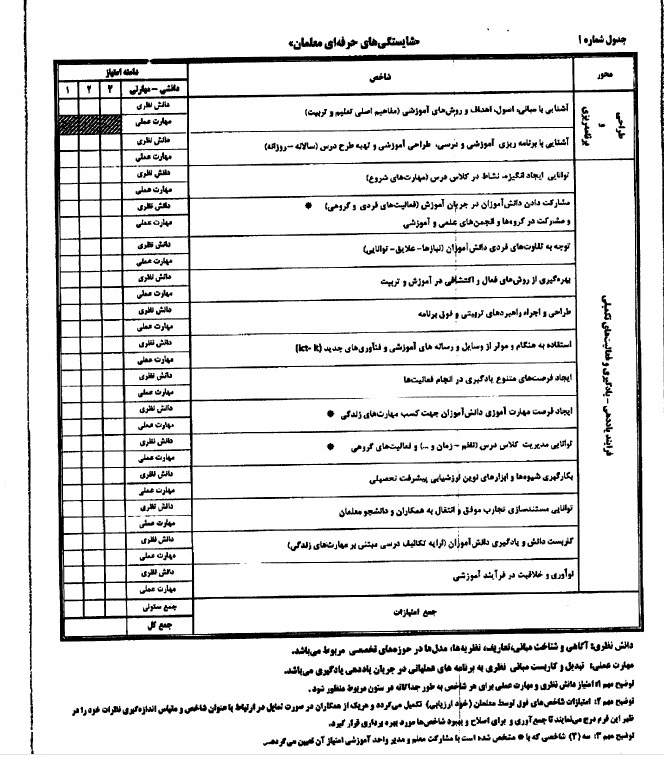 جدول شماره ۱
«شایستگی‌های حرفه‌ای معلمان»
محور
شاخص
دامنه امتیاز
دانشی - مهارتی
۳
۲
۱
طراحی و برنامه‌ریزی
آشنایی با مبانی، اصول، اهداف و روش‌های آموزشی (مفاهیم اصلی تعلیم و تربیت)
دانش نظری
مهارت عملی
آشنایی با برنامه ریزی آموزشی و درسی، طراحی آموزشی و تهیه طرح درس (سالانه - روزانه)
دانش نظری
مهارت عملی
فرآیند یاددهی - یادگیری و فعالیت‌های تکمیلی
توانایی ایجاد انگیزه، نشاط در کلاس درس (مهارت‌های شروع)
دانش نظری
مهارت عملی
مشارکت دادن دانش‌آموزان در جریان آموزش (فعالیت‌های فردی و گروهی) *
و مشارکت در گروه‌ها و انجمن‌های علمی و آموزشی
دانش نظری
مهارت عملی
توجه به تفاوت‌های فردی دانش‌آموزان (نیازها - علایق - توانایی)
دانش نظری
مهارت عملی
بهره‌گیری از روش‌های فعال و اکتشافی در آموزش و تربیت
دانش نظری
مهارت عملی
طراحی و اجراء راهبردهای تربیتی و فوق برنامه
دانش نظری
مهارت عملی
استفاده به هنگام و موثر از وسایل و رسانه های آموزشی و فنآوری‌های جدید (ict- it)
دانش نظری
مهارت عملی
ایجاد فرصت‌های متنوع یادگیری در انجام فعالیت‌ها
دانش نظری
مهارت عملی
ایجاد فرصت مهارت آموزی دانش‌آموزان جهت کسب مهارت‌های زندگی *
دانش نظری
مهارت عملی
توانایی مدیریت کلاس درس (نظم - زمان و ...) و فعالیت‌های گروهی *
دانش نظری
مهارت عملی
بکارگیری شیوه‌ها و ابزارهای نوین ارزشیابی پیشرفت تحصیلی
دانش نظری
مهارت عملی
توانایی مستندسازی تجارب موفق و انتقال به همکاران و دانشجو معلمان
دانش نظری
مهارت عملی
کاربست دانش و یادگیری دانش‌آموزان (ارایه تکالیف درسی مبتنی بر مهارت‌های زندگی)
دانش نظری
مهارت عملی
نوآوری و خلاقیت در فرآیند آموزشی
دانش نظری
مهارت عملی
جمع امتیازات
جمع ستونی
جمع کل
دانش نظری: آگاهی و شناخت مبانی، تعاریف، نظریه‌ها، مدل‌ها در حوزه‌های تخصصی مربوط می‌باشد.
مهارت عملی: تبدیل و کاربست مبانی نظری به برنامه های عملیاتی در جریان یاددهی یادگیری می‌باشد.
توضیح مهم ۱: امتیاز دانش نظری و مهارت عملی برای هر شاخص به طور جداگانه در ستون مربوط منظور شود.
توضیح مهم ۲: امتیازات شاخص‌های فوق توسط معلمان (خود ارزیابی) تکمیل می‌گردد و هریک از همکاران در صورت تمایل در ارتباط با عنوان شاخص و مقیاس اندازه‌گیری نظرات خود را در
ظهر این فرم درج می‌نمایند تا جمع‌آوری و برای اصلاح و بهبود شاخص‌ها مورد بهره برداری قرار گیرد.
توضیح مهم ۳: سه (۳) شاخصی که با * مشخص شده است با مشارکت معلم و مدیر واحد آموزشی امتیاز آن تعیین می‌گردد.